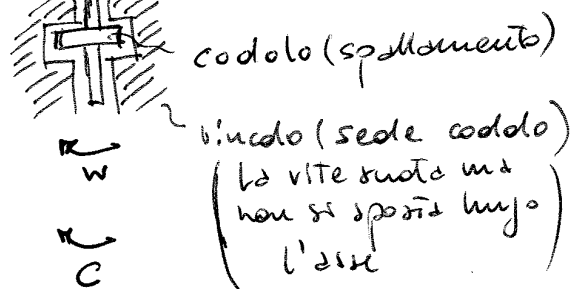 codolo (spallamento)
vincolo (sede codolo)
(la vite ruota ma
non si sposta lungo
l'asse)
W
C